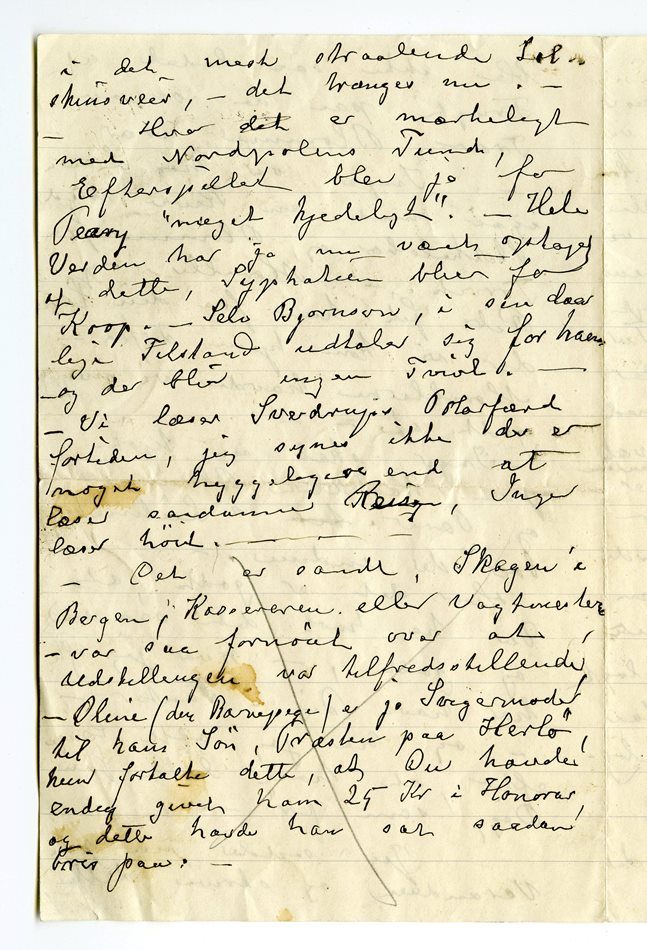 i det mest straalende Sol
skinsveir, – det trænges nu. –
– Hvor det er mærkeligt
med Nordpolens Fund,
Efterspillet blev jo for
Peary "meget kjedeligt". – Hele
Verden har ja nu været optaget
af dette, Syphatien blev for
Koop. – Selv Bjørnson, i sin daar
lige Tilstand udtaler sig for ham
– og der blir ingen Tvivl. –
– Vi læser Sverdrups Polarfærd
fortiden, jeg synes ikke der er
noget hyggeligere end at
læse saadanne Reiser, Inger
læser höit. – – – –
– Det er sandt, Skagen i
Bergen, Kassereren eller Vagtmester
– var saa fornöiet over at
Udstillingen var tilfredsstillende,
– Oline (den Barnepige) er jo Svigermoder
til hans Sön, Præsten paa Herlö,
hun fortalte dette, at Du havde
endog givet ham 25 Kr i Honorar,
og dette havde han sat saadan
Pris paa. –